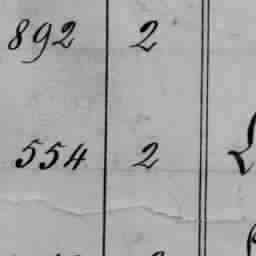 892 2
554 2